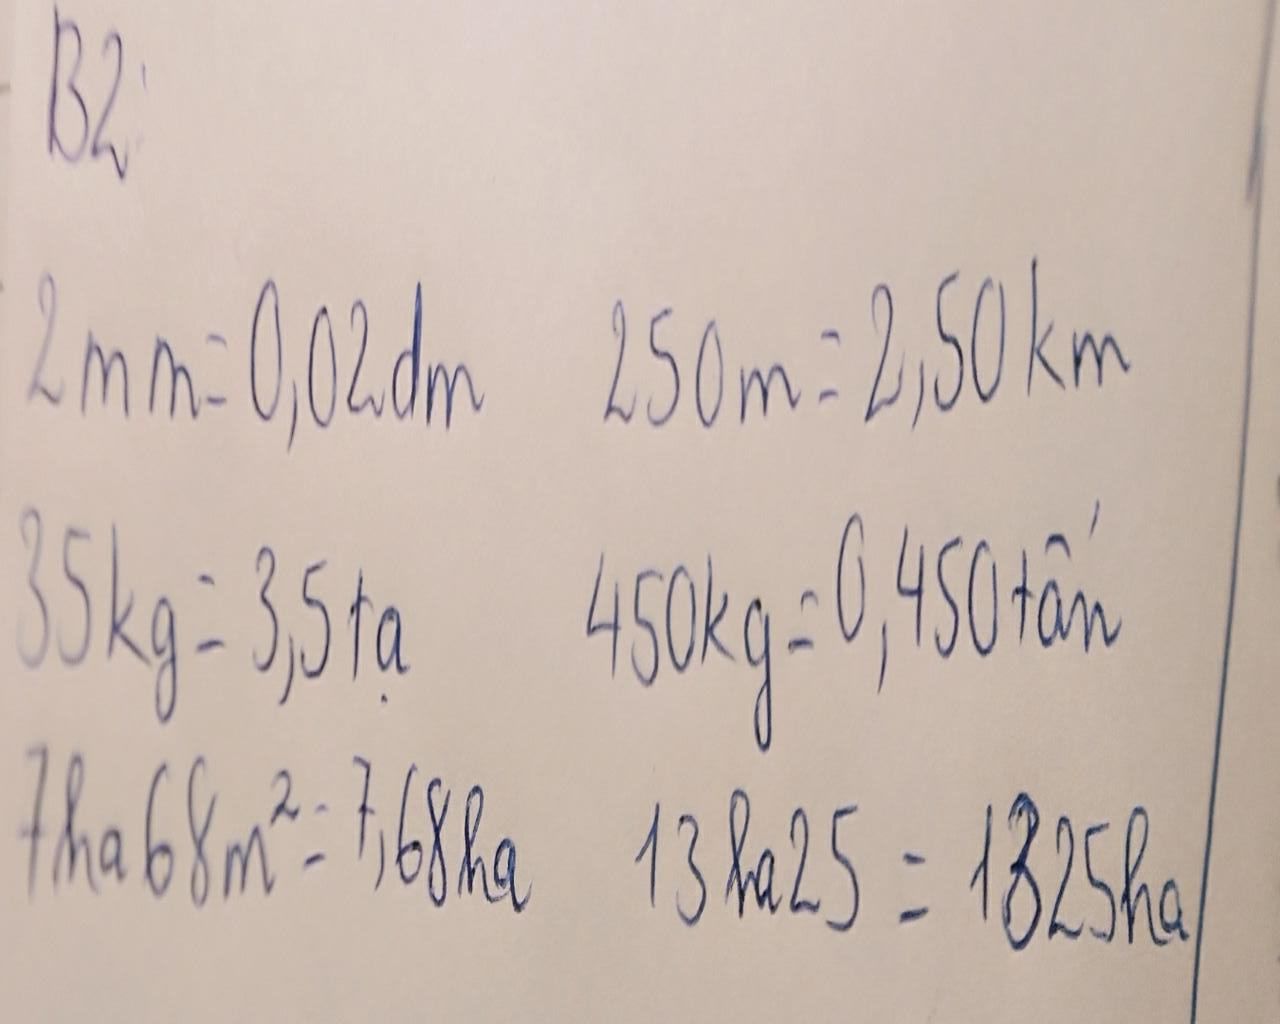 B2:
2mm=0,02dm 250m=2,50km
35kg=3,5tạ 450kg=0,450tấn
7ha68m²=7,68ha 13ha25=1325ha